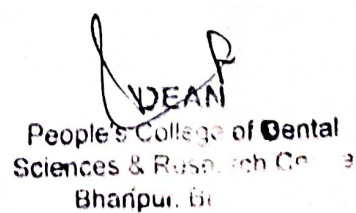 DEAN
People's College of Dental
Sciences & Research
Bhanpur,